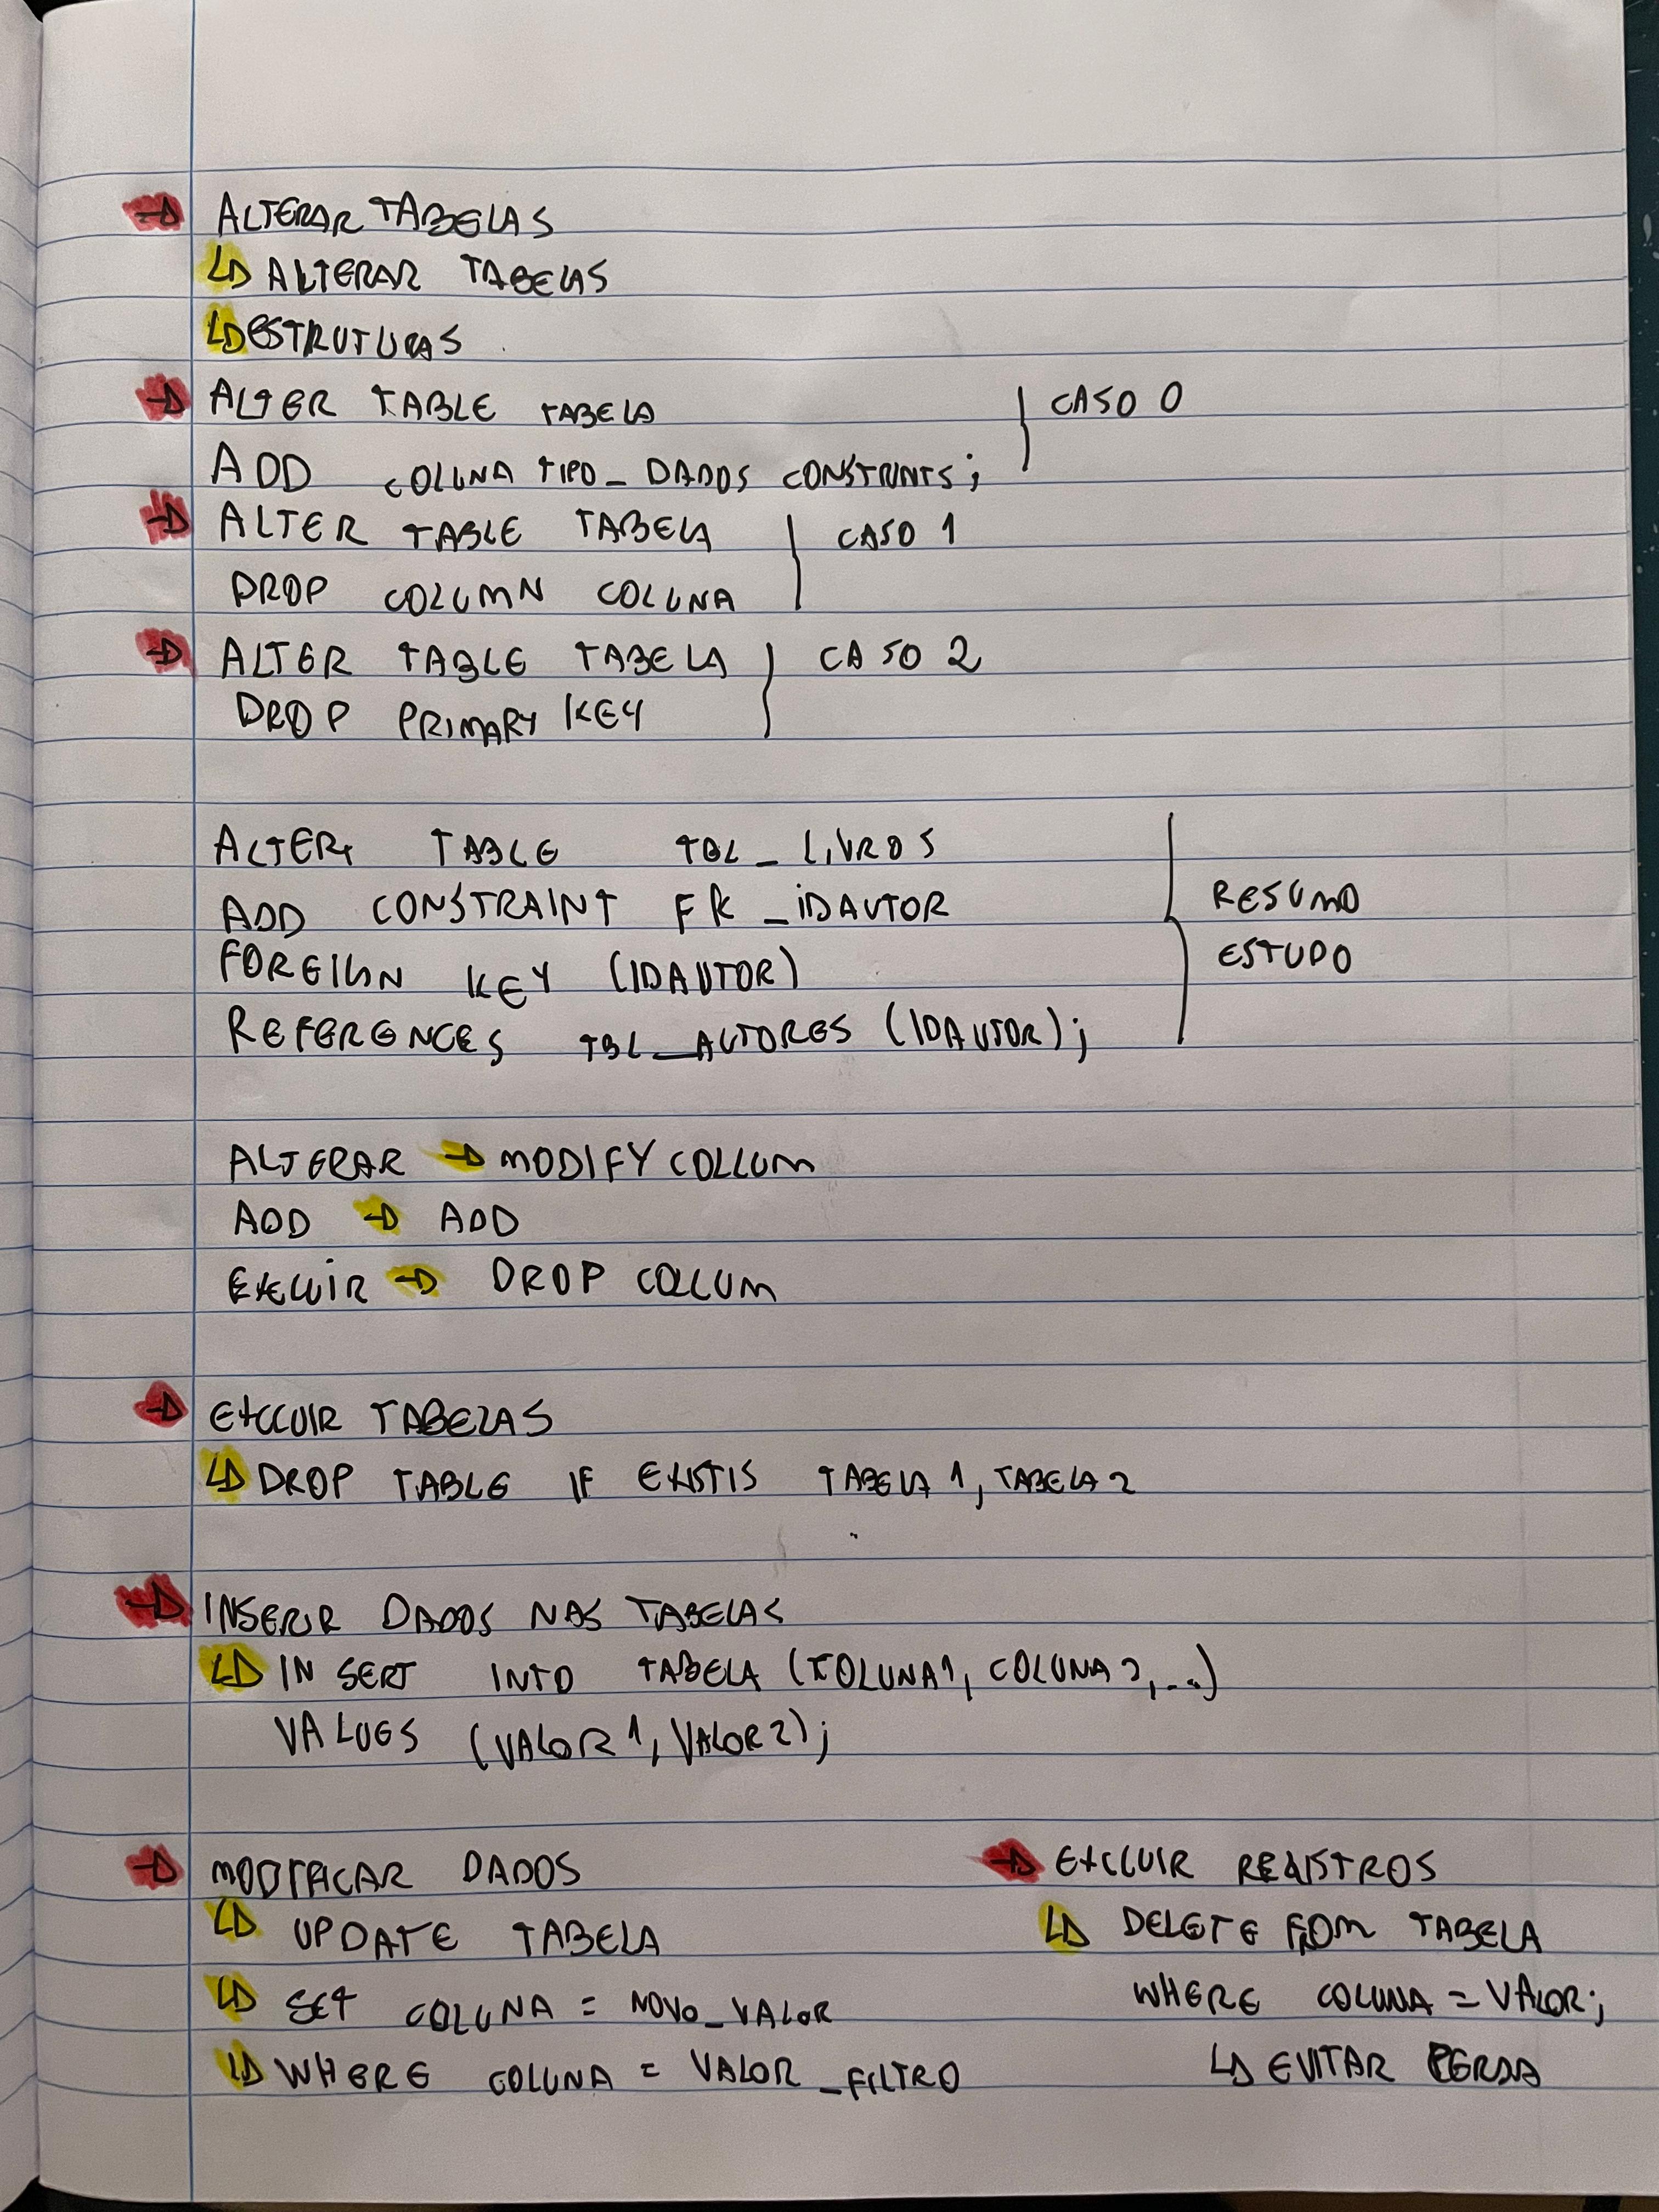 → ALTERAR TABELAS
↳ ALTERAR TABELAS
↳ ESTRUTURAS
→ ALTER TABLE TABELA | CASO 0
ADD COLUNA TIPO_DADOS CONSTRINTS;
→ ALTER TABLE TABELA | CASO 1
DROP COLUMN COLUNA
→ ALTER TABLE TABELA | CASO 2
DROP PRIMARY KEY
ALTER TABLE TBL_LIVROS
ADD CONSTRAINT FK_IDAUTOR
FOREIGN KEY (IDAUTOR)
REFERENCES TBL_AUTORES (IDAUTOR);
RESUMO
ESTUDO
ALTERAR → MODIFY COLLUM
ADD → ADD
EXCLUIR → DROP COLLUM
→ EXCLUIR TABELAS
↳ DROP TABLE IF EXISTIS TABELA 1, TABELA 2
→ INSERIR DADOS NAS TABELAS
↳ INSERT INTO TABELA (COLUNA1, COLUNA2,...)
VALUES (VALOR1, VALOR2);
→ MODIFICAR DADOS
↳ UPDATE TABELA
↳ SET COLUNA = NOVO_VALOR
↳ WHERE COLUNA = VALOR_FILTRO
→ EXCLUIR REGISTROS
↳ DELETE FROM TABELA
WHERE COLUNA = VALOR;
↳ EVITAR PERDA